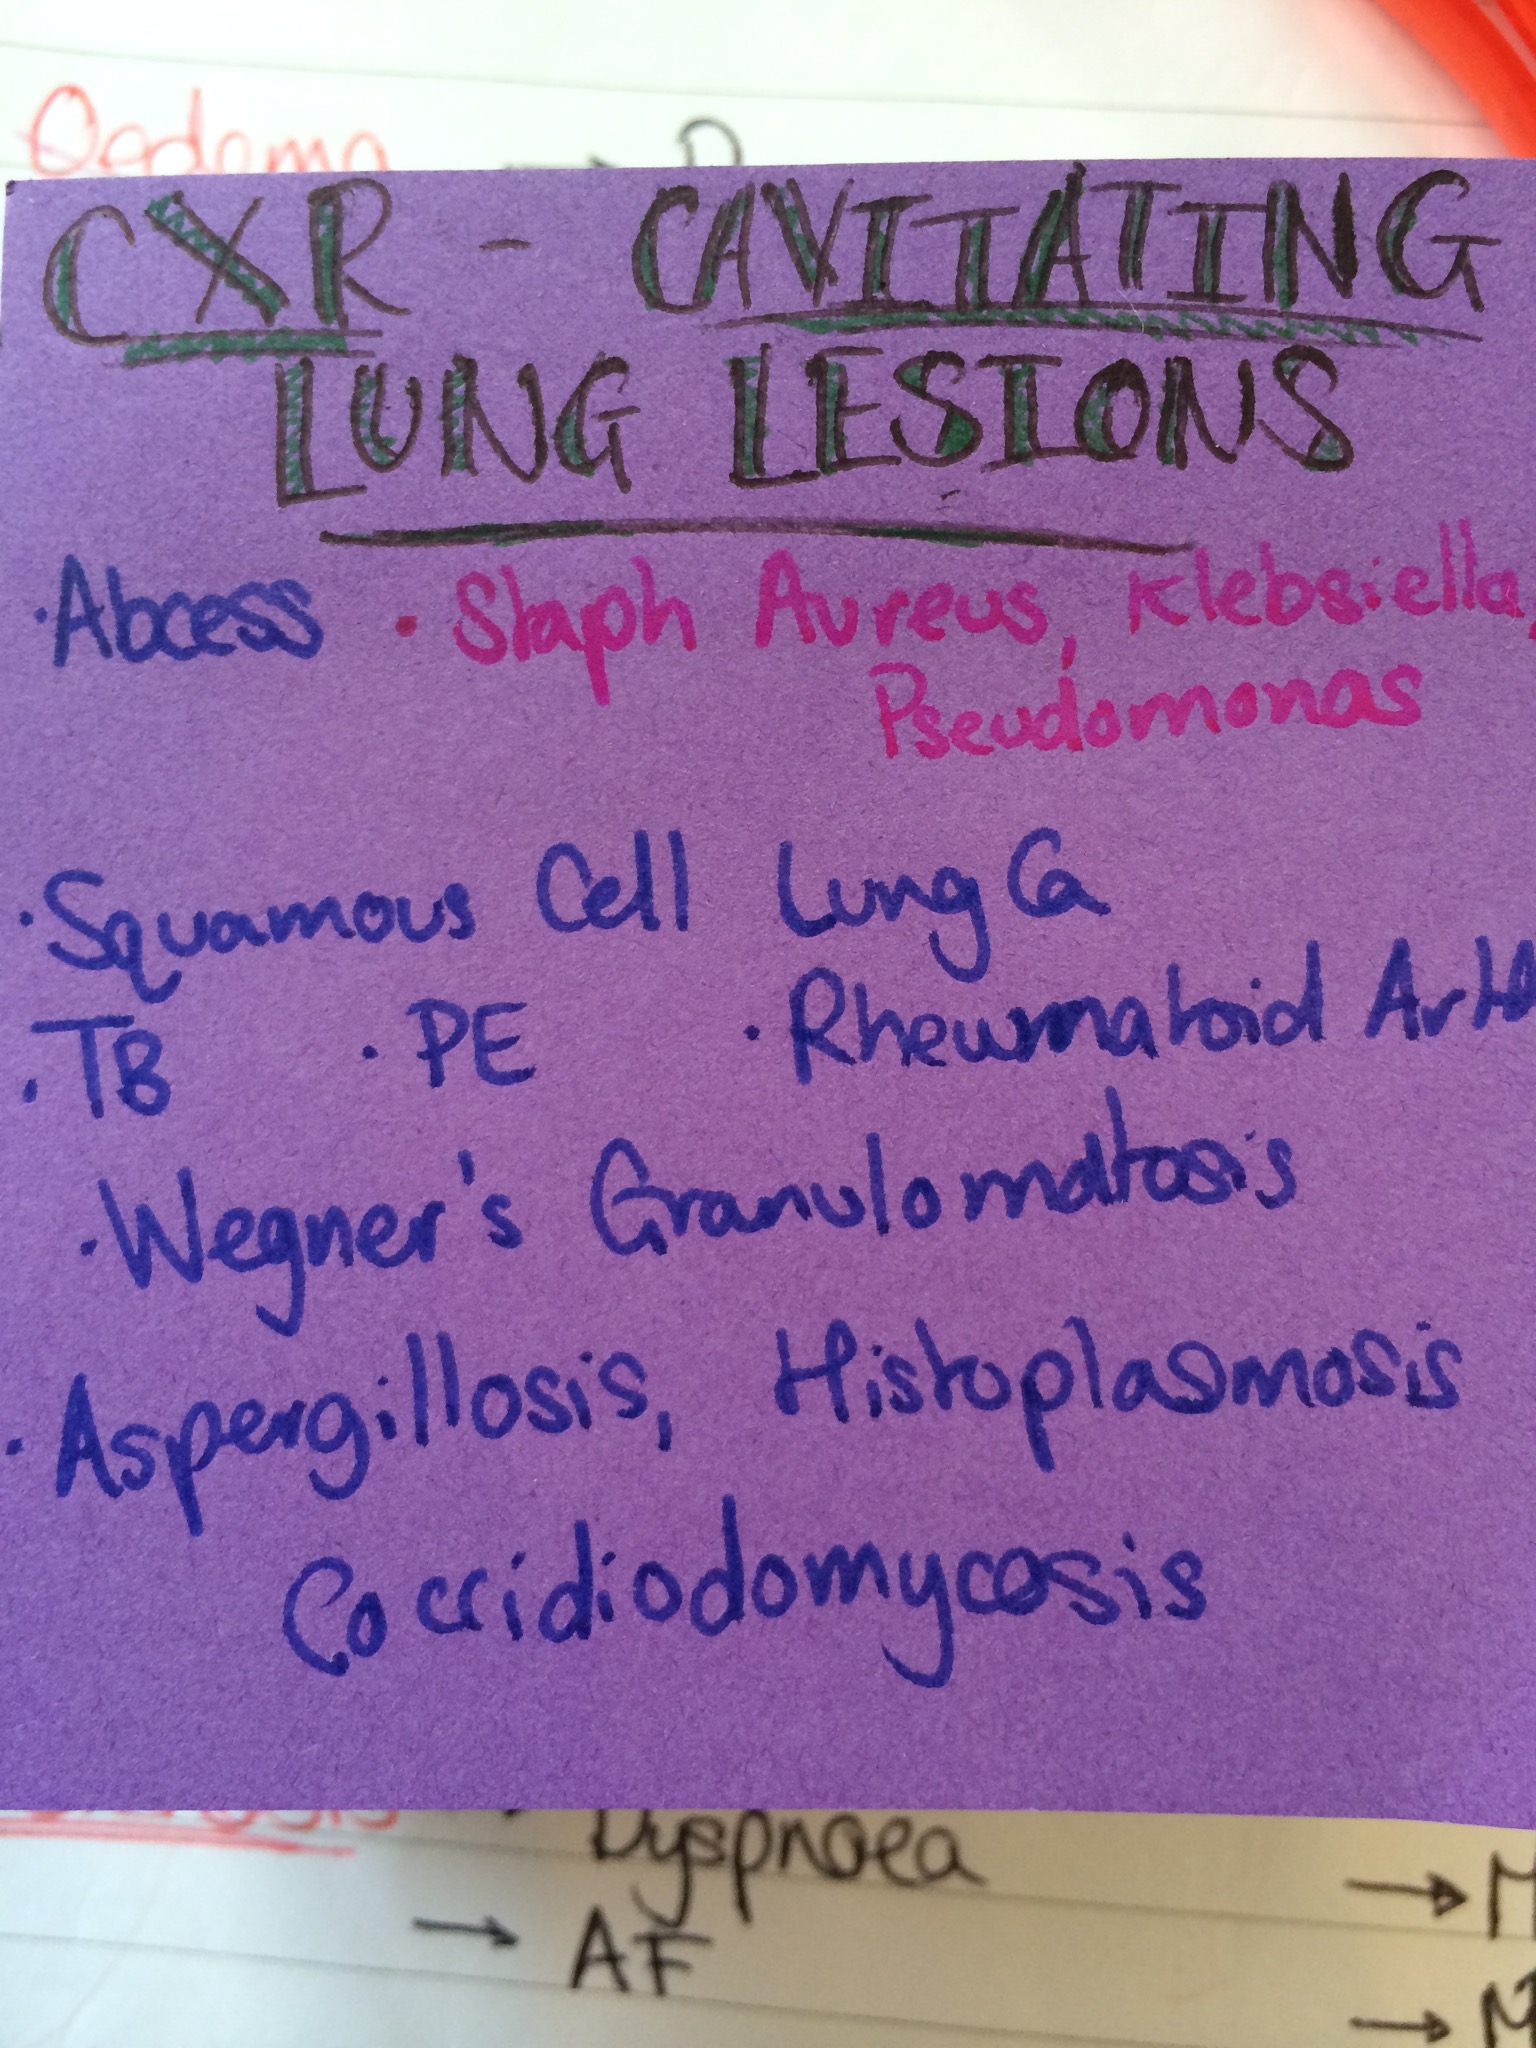 Oedema
CXR - CAVITATING
LUNG LESIONS
·Abcess · Staph Aureus, Klebsiella,
Pseudomonas
·Squamous Cell Lung Ca
·TB ·PE ·Rheumatoid Arth
·Wegner's Granulomatosis
·Aspergillosis, Histoplasmosis
Coccidiodomycosis
Dyspnoea → M
→ AF
→ M